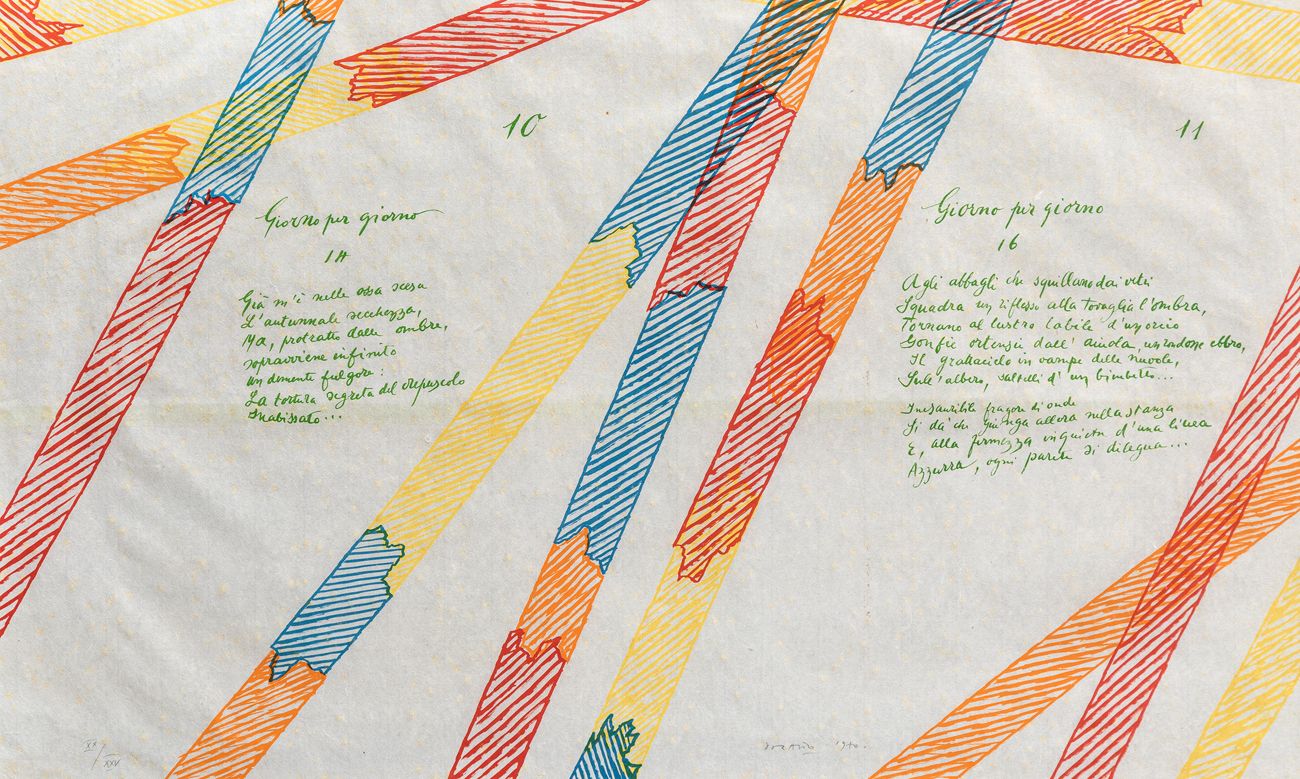 10
Giorno per giorno
14
Già m'è nelle ossa scesa
L'autunnale secchezza,
Ma, protratto dalle ombre,
sopravviene infinito
un demente fulgore:
La tortura segreta del crepuscolo
Inabissato...
11
Giorno per giorno
16
Agli abbagli che squillano dai vetri
Squadra un riflesso alla tovaglia l'ombra,
Tornano al lustro labile d'un orcio
Gonfie ortensie dall'aiuola, un rondone ebbro,
Il grattacielo in vampe delle nuvole,
Sull'albero, saltelli d'un bimbetto...
Inesauribile fragore di onde
Si dà che giunga allora nella stanza
E, alla fermezza inquieta d'una linea
Azzurra, ogni parete si dilegua...
XXV